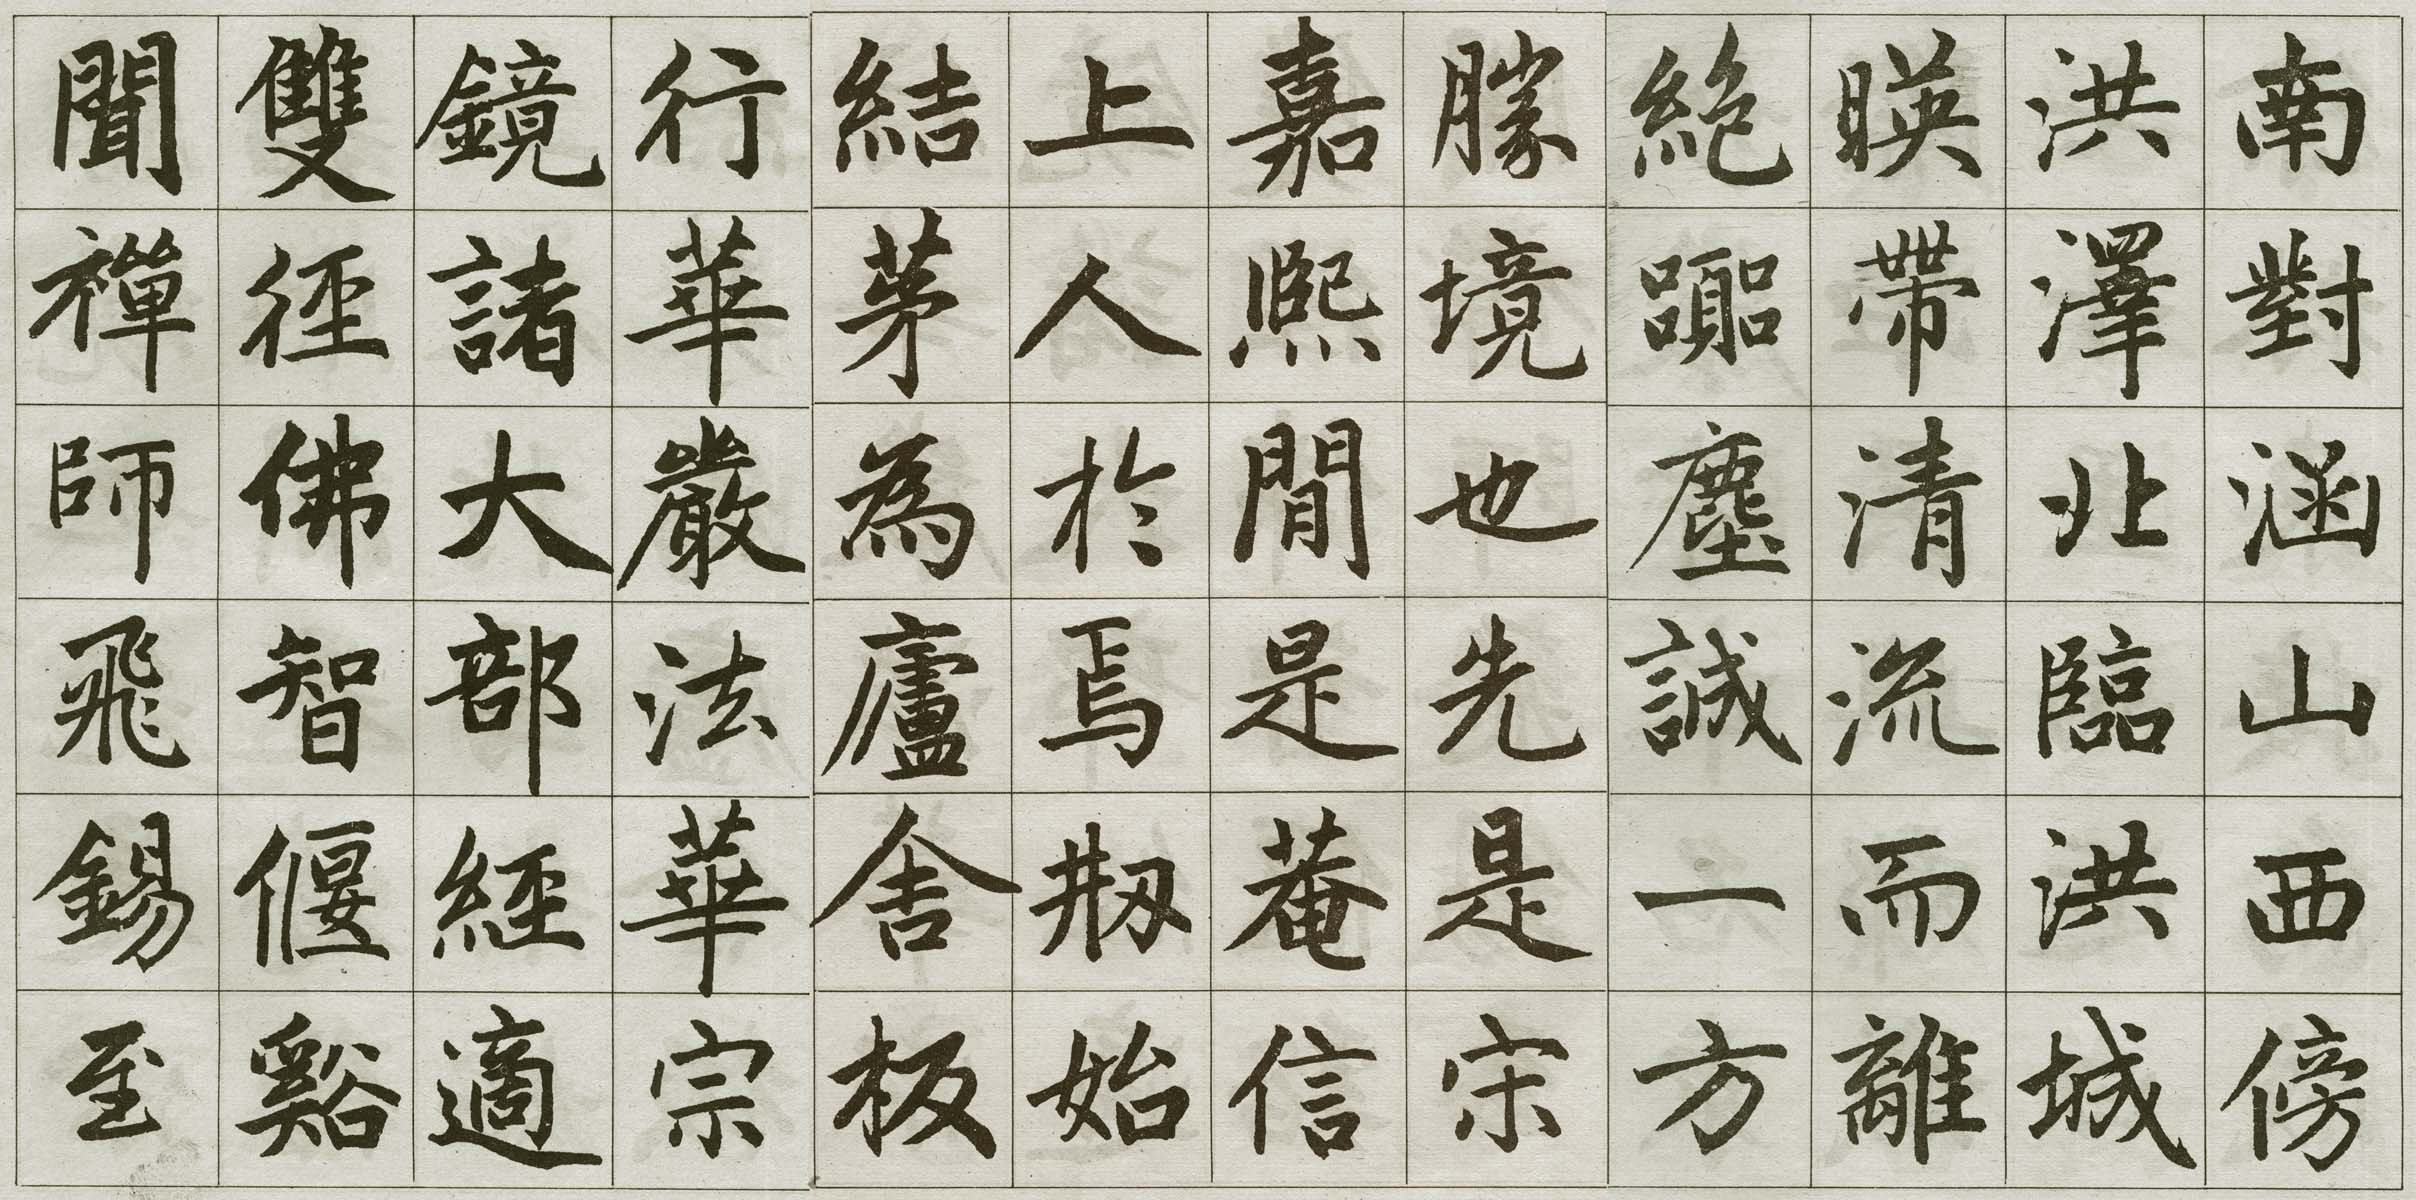 南對涵山西傍
洪澤北臨洪城
暎帶清流而離
絶躙塵誠一方
勝境也先是宋
嘉熙間是菴信
上人於焉剏始
結茅為廬舍板
行華嚴法華宗
鏡諸大部經適
雙徑佛智偃谿
聞禪師飛錫至